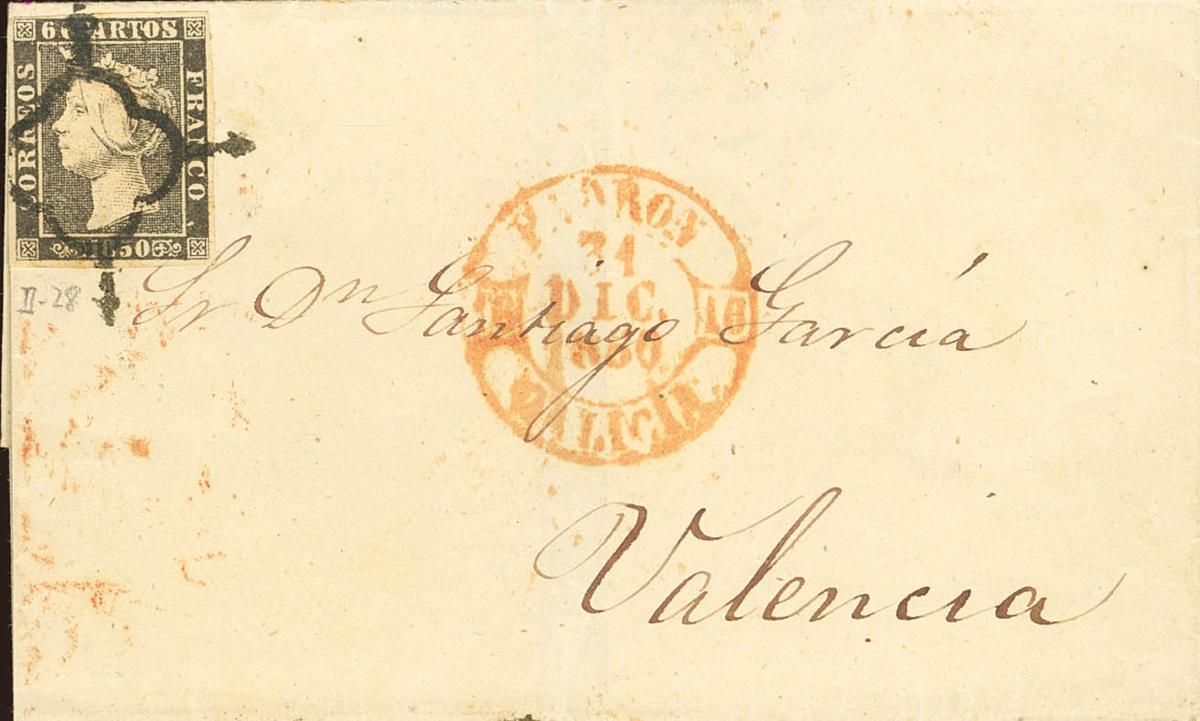 6 CUARTOS
CORREOS
FRANCO.
1850
II-28
PADRON
31
DIC.
1850.
16
GALICIA.
Sr Dn Santiago García
Valencia